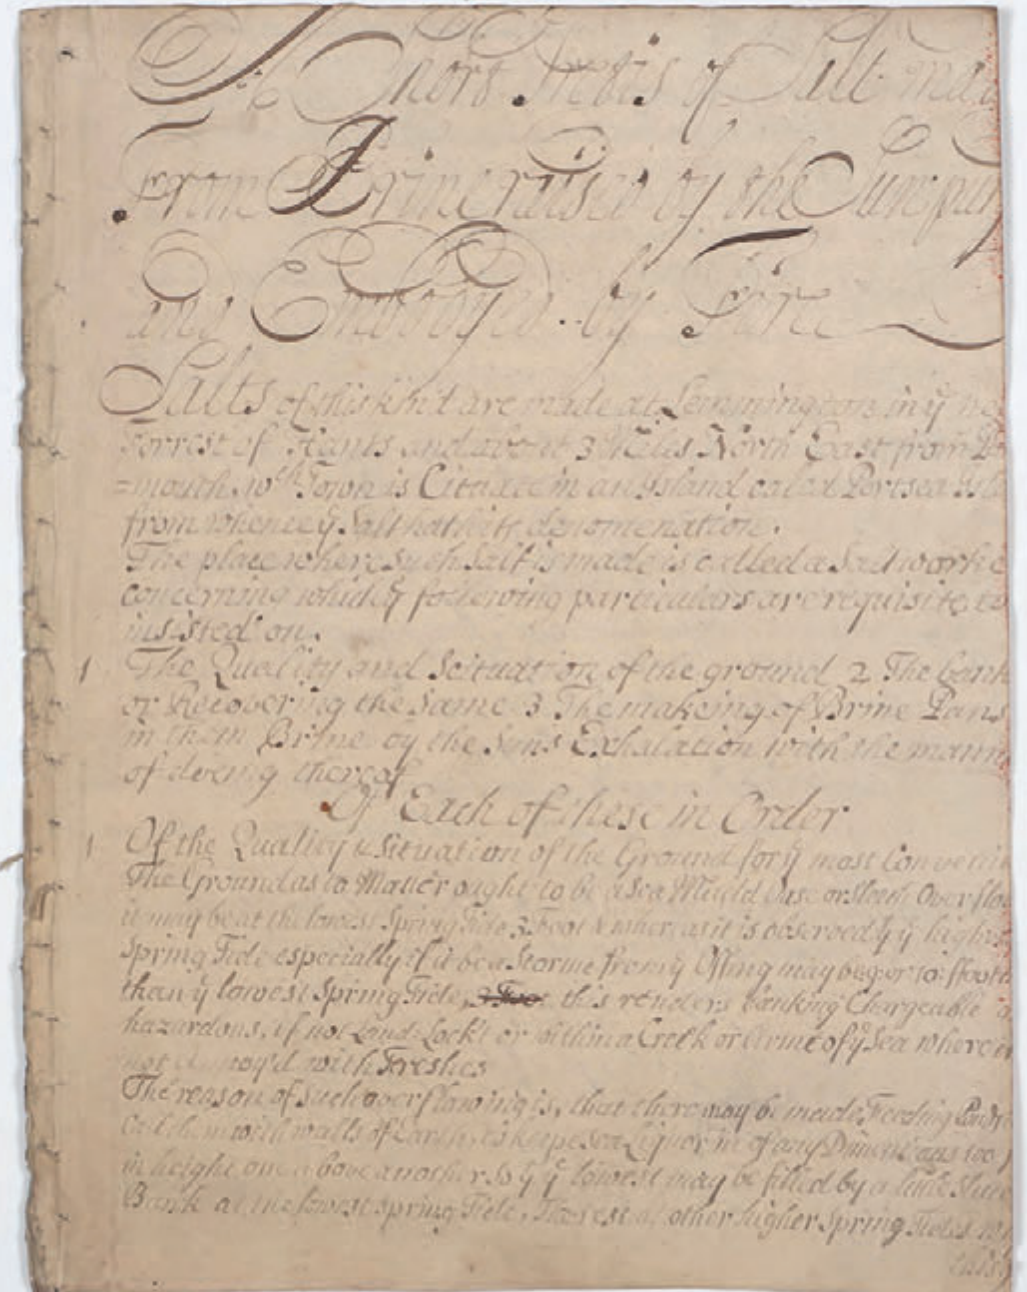 A Short Treatis of Salt ma
From Brine raised by the Sun
and Employed by Fire
Salts of this kind are made at Lemmington in ỹ
Forrest of Hants and about 3 Miles North East from Po
=mouth, wch Town is Cituate in an Island caled Portsea Isle
from whence ỹ Salt hath its denomenation.
The place where such Salt is made is called a Saltworke
concerning which ỹ following particulars are requisite to
insisted on.
1 The Quality and Scituation of the ground 2 The bank
or Recovering the same 3 The makeing of Brine Pans
in them Brine by the Suns Exhalation with the mann
of doeing thereof
Of Each of these in Order
1 Of the Quality & Situation of the Ground for ỹ most
The Ground as to Matter ought to be a Sea Mudd or Over flo
it may be at the lowest Spring Tide 3 Foot & whereas it is observed ỹ ỹ highe
Spring Tide especially if it be a Storme from ỹ Offing may be 9 or 10 ffoote
than ỹ lowest Spring Tide, this renders banking Chargeable
hazardous, if not Land-Lockt or within a Creek or Arme of ỹ Sea where
not Annoy'd with Freshes
The reason of such overflowing is, that there may be made Feeding
with walls of Earth, to keepe Sea Liquor in of any
in height one above another, so ỹ ỹ lowest may be filled by a little
Bank at the lowest Spring Tide, The rest at other higher Spring Tides
this